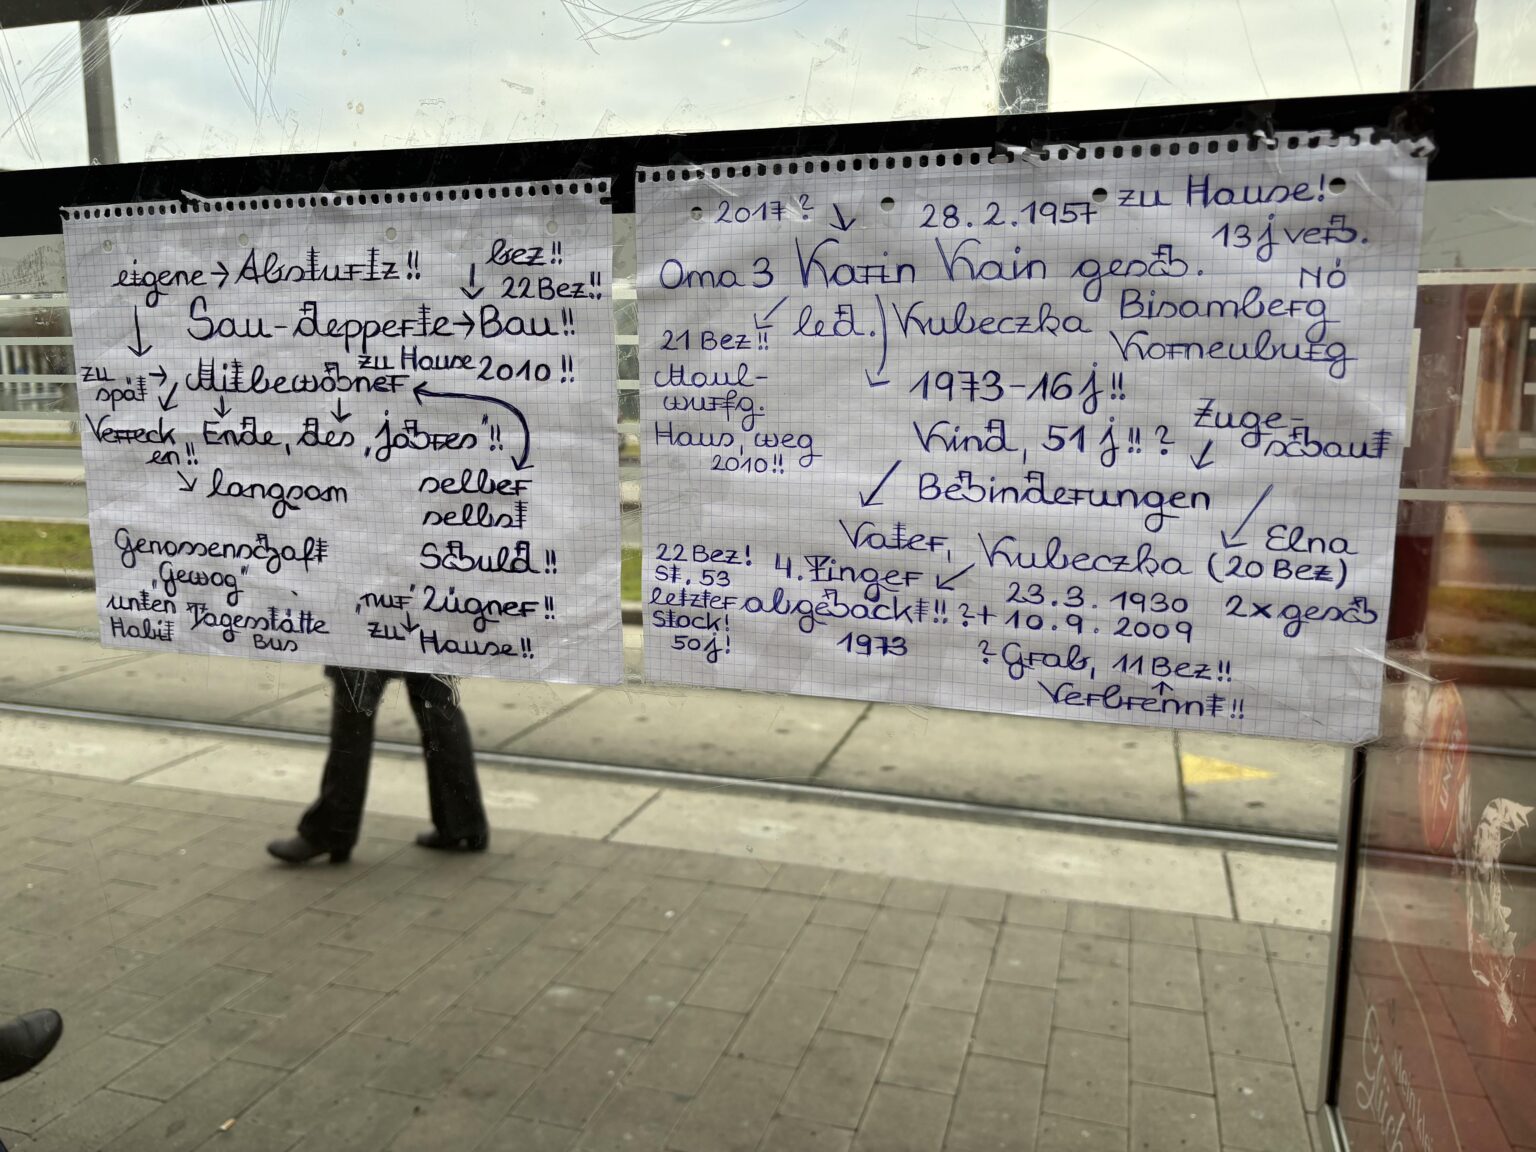 eigene → Absturtz!!
bez!!
22 Bez!!
Sau-depperte → Bau!!
zu Hause 2010!!
zu spät → Mitbewohner
Verreck
en!!
"Ende, des, jahres"!!
langsam
selber
selbst
Schuld!!
Genossenschaft
"Gewog"
unten
Habit
Tagesstätte
Bus
"nur" Lügner!!
zu Hause!!
2017?
28.2.1957
zu Hause!
13 j verh.
Oma 3 Karin Kain gesch.
NÖ
21 Bez!!
led. Kubeczka
Bisamberg
Korneuburg
Maul-
wurfg.
Haus, weg
2010!!
1973-16 j!!
Kind, 51 j!!?
Zuge-
schaut
Behinderungen
Vater, Kubeczka
Elna
(20 Bez)
22 Bez!
St. 53
letzter
Stock!
50 j!
4. Finger
abgehackt!!
1973
23.3.1930
?+ 10.9.2009
2x gesch
? Grab, 11 Bez!!
Verbrennt!!
Mein klei
Glück